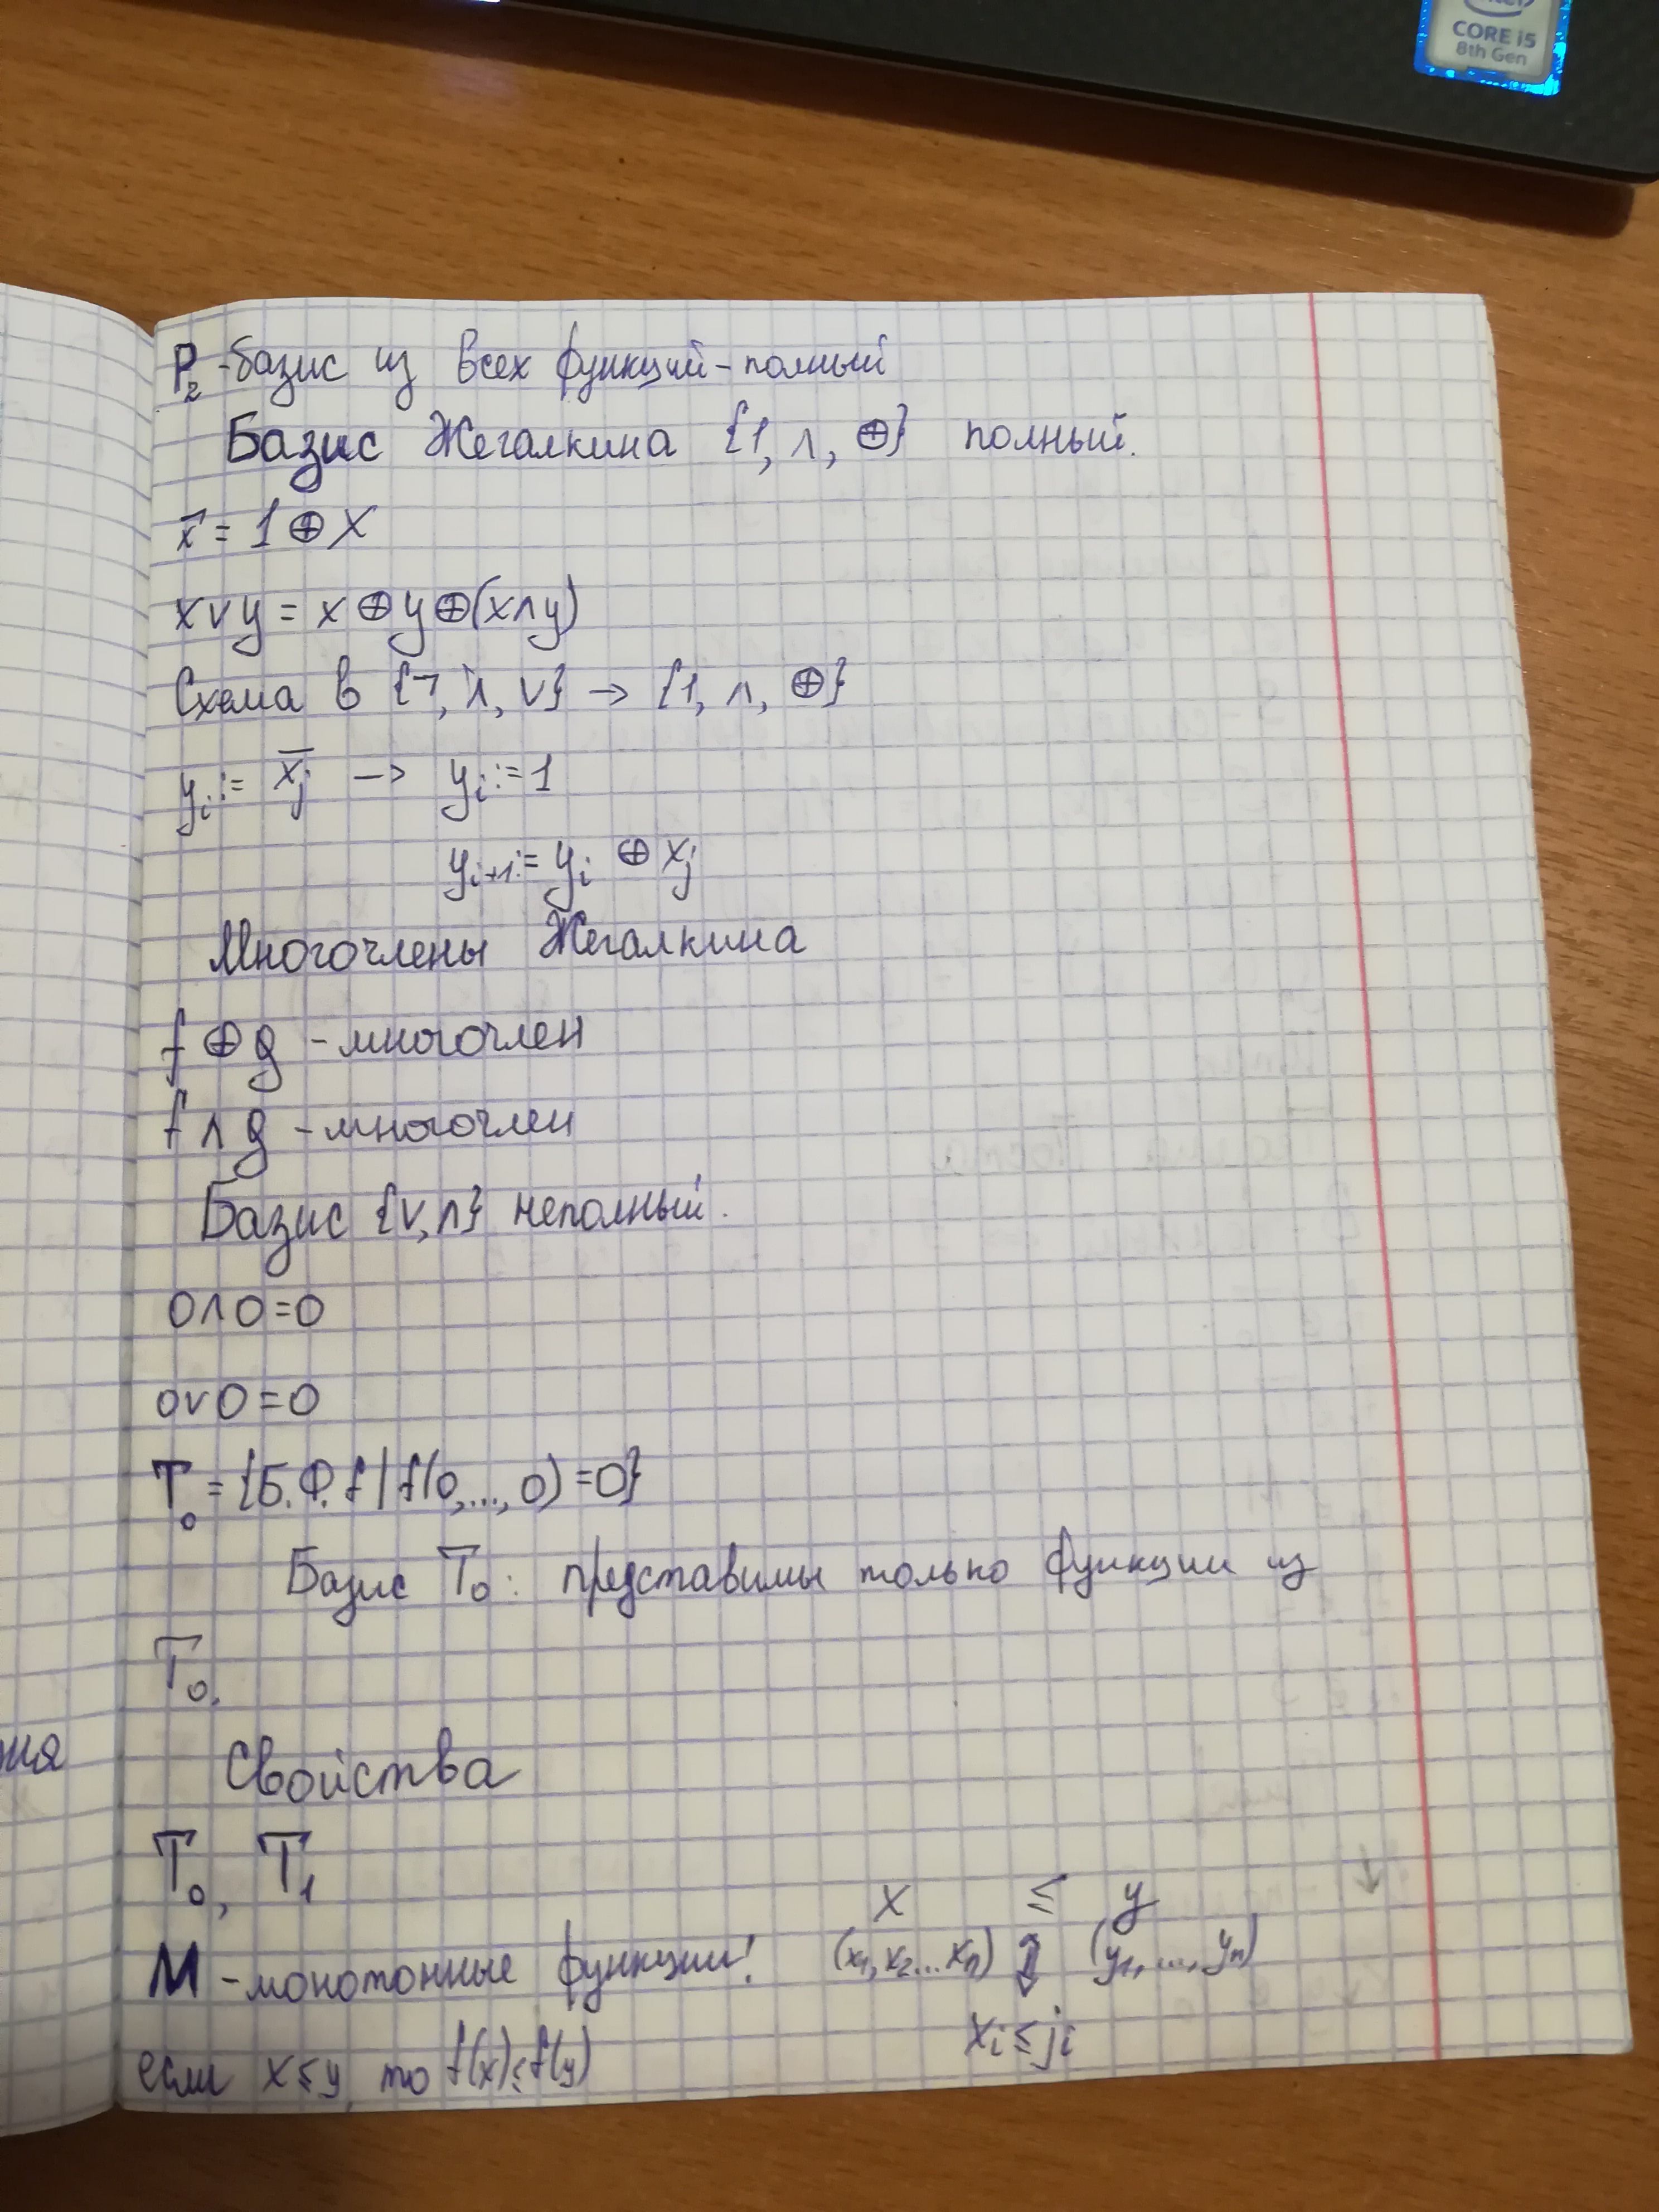 CORE i5
8th Gen
P₂ - базис из всех функций - полный
Базис Жегалкина {1, ∧, ⊕} полный.
x̄ = 1 ⊕ x
x∨y = x ⊕ y ⊕ (x∧y)
Схема в {¬, ∧, ∨} → {1, ∧, ⊕}
yᵢ := x̄ⱼ → yᵢ := 1
yᵢ₊₁ := yᵢ ⊕ xⱼ
Многочлены Жегалкина
f ⊕ g - многочлен
f ∧ g - многочлен
Базис {∨, ∧} неполный.
0∧0=0
0∨0=0
T₀ = {Б.Ф. f | f(0,...,0) = 0}
Базис T₀: представимы только функции из
T₀.
ия
Свойства
T₀, T₁
x ≤ y
M - монотонные функции! (x₁, x₂...xₙ) ⇕ (y₁, ..., yₙ)
xᵢ ≤ jᵢ
если x ≤ y, то f(x) ≤ f(y)